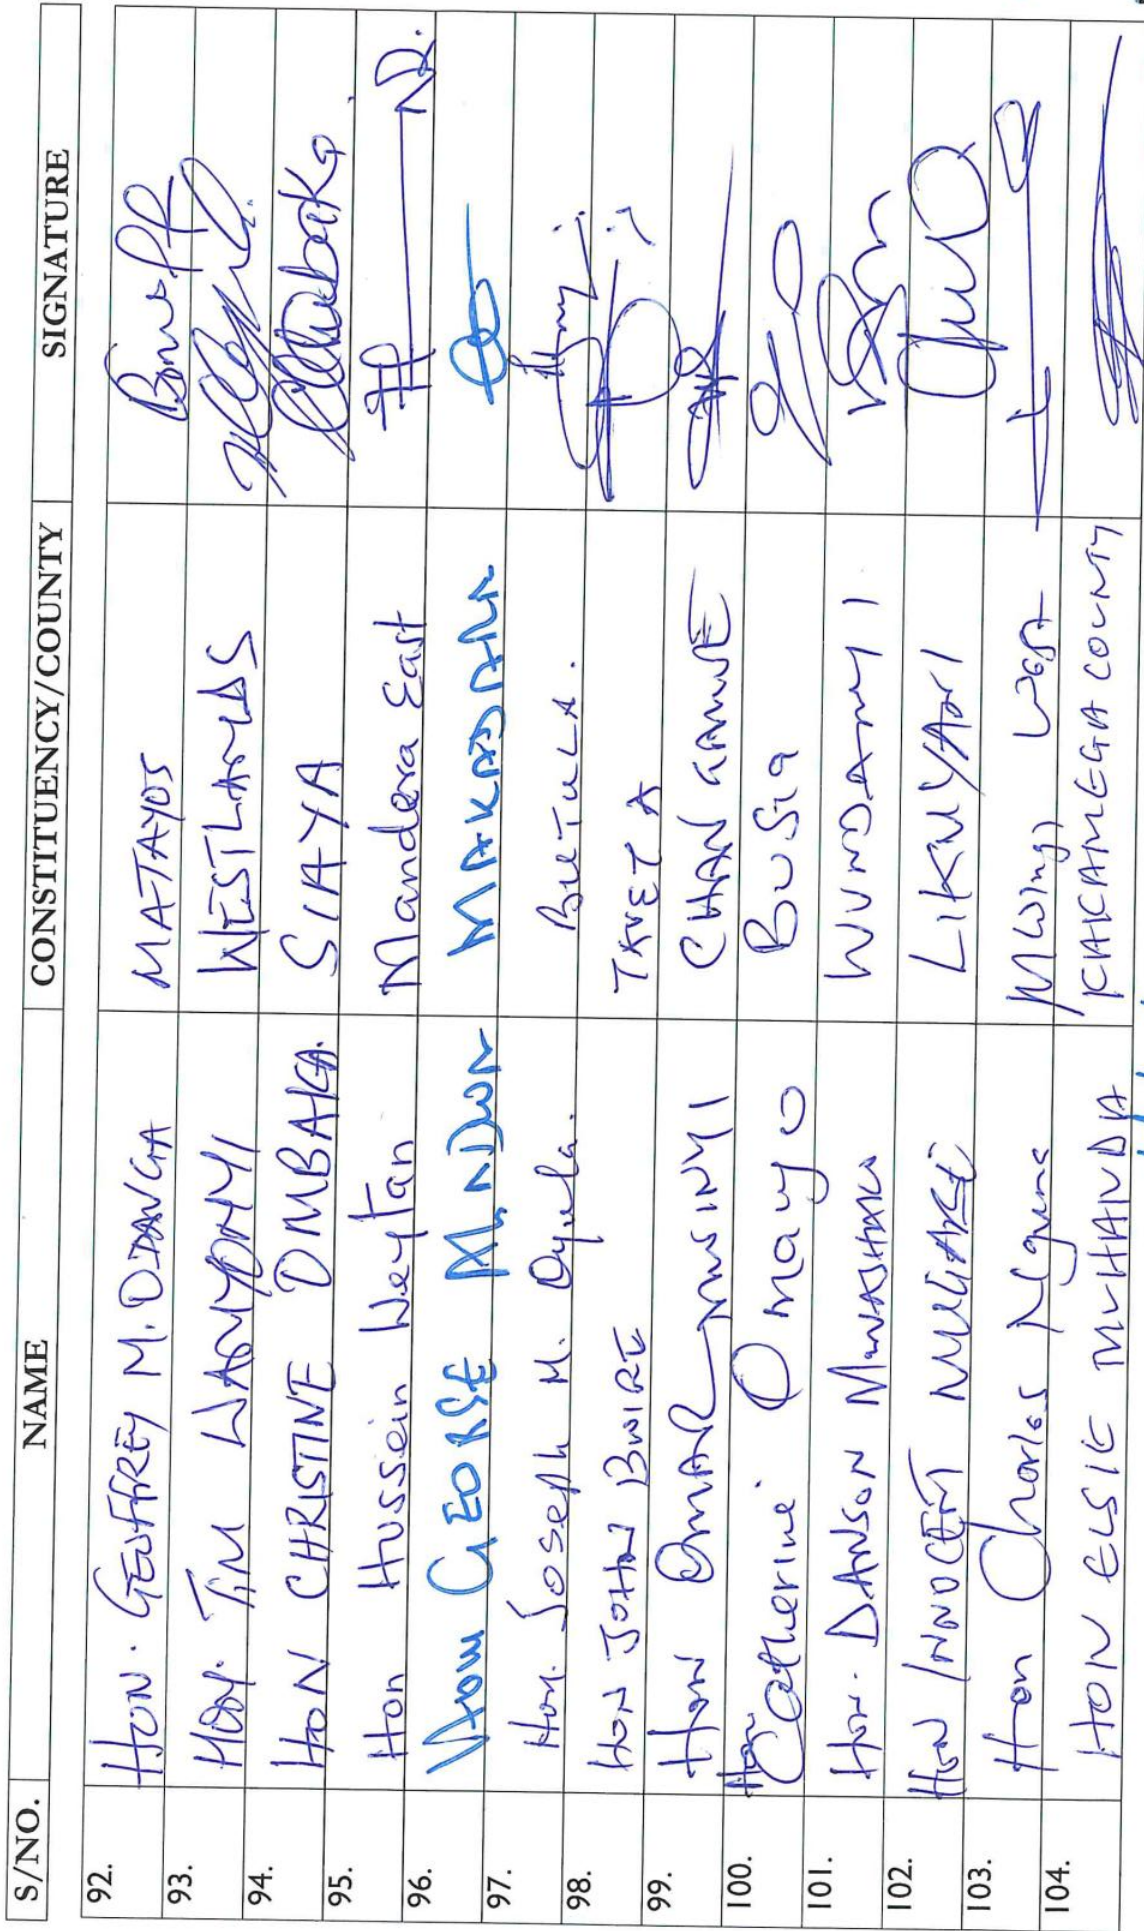 S/NO. NAME CONSTITUENCY/COUNTY SIGNATURE
92. HON. GEOFFREY M. ODANGA MATAYOS
93. HON. TIM WANYONYI WESTLANDS
94. HON CHRISTINE OMBAKA SIAYA
95. Hon Hussein Weytan Mandera East
96. Hon GEORGE MAKADARA
97. Hon. Joseph M. Oyula. BUTULA.
98. HON JOHN BWIRE TAVETA
99. HON OMAR MWINYI CHANGAMWE
100. Hon Catherine Omayo BUSIA
101. Hon. DANSON MWASHAKO WUNDANYI
102. HON INNOCENT MUGABE LIKUYANI
103. Hon Charles Nguna Mwingi West
104. HON ELSIE MUHANDA KAKAMEGA COUNTY